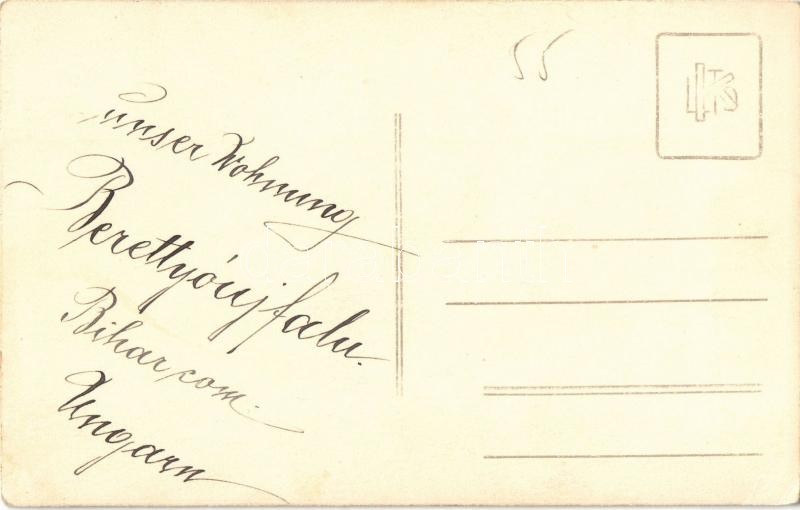 unser Wohnung
Berettyóújfalu.
Bihar com.
Ungarn